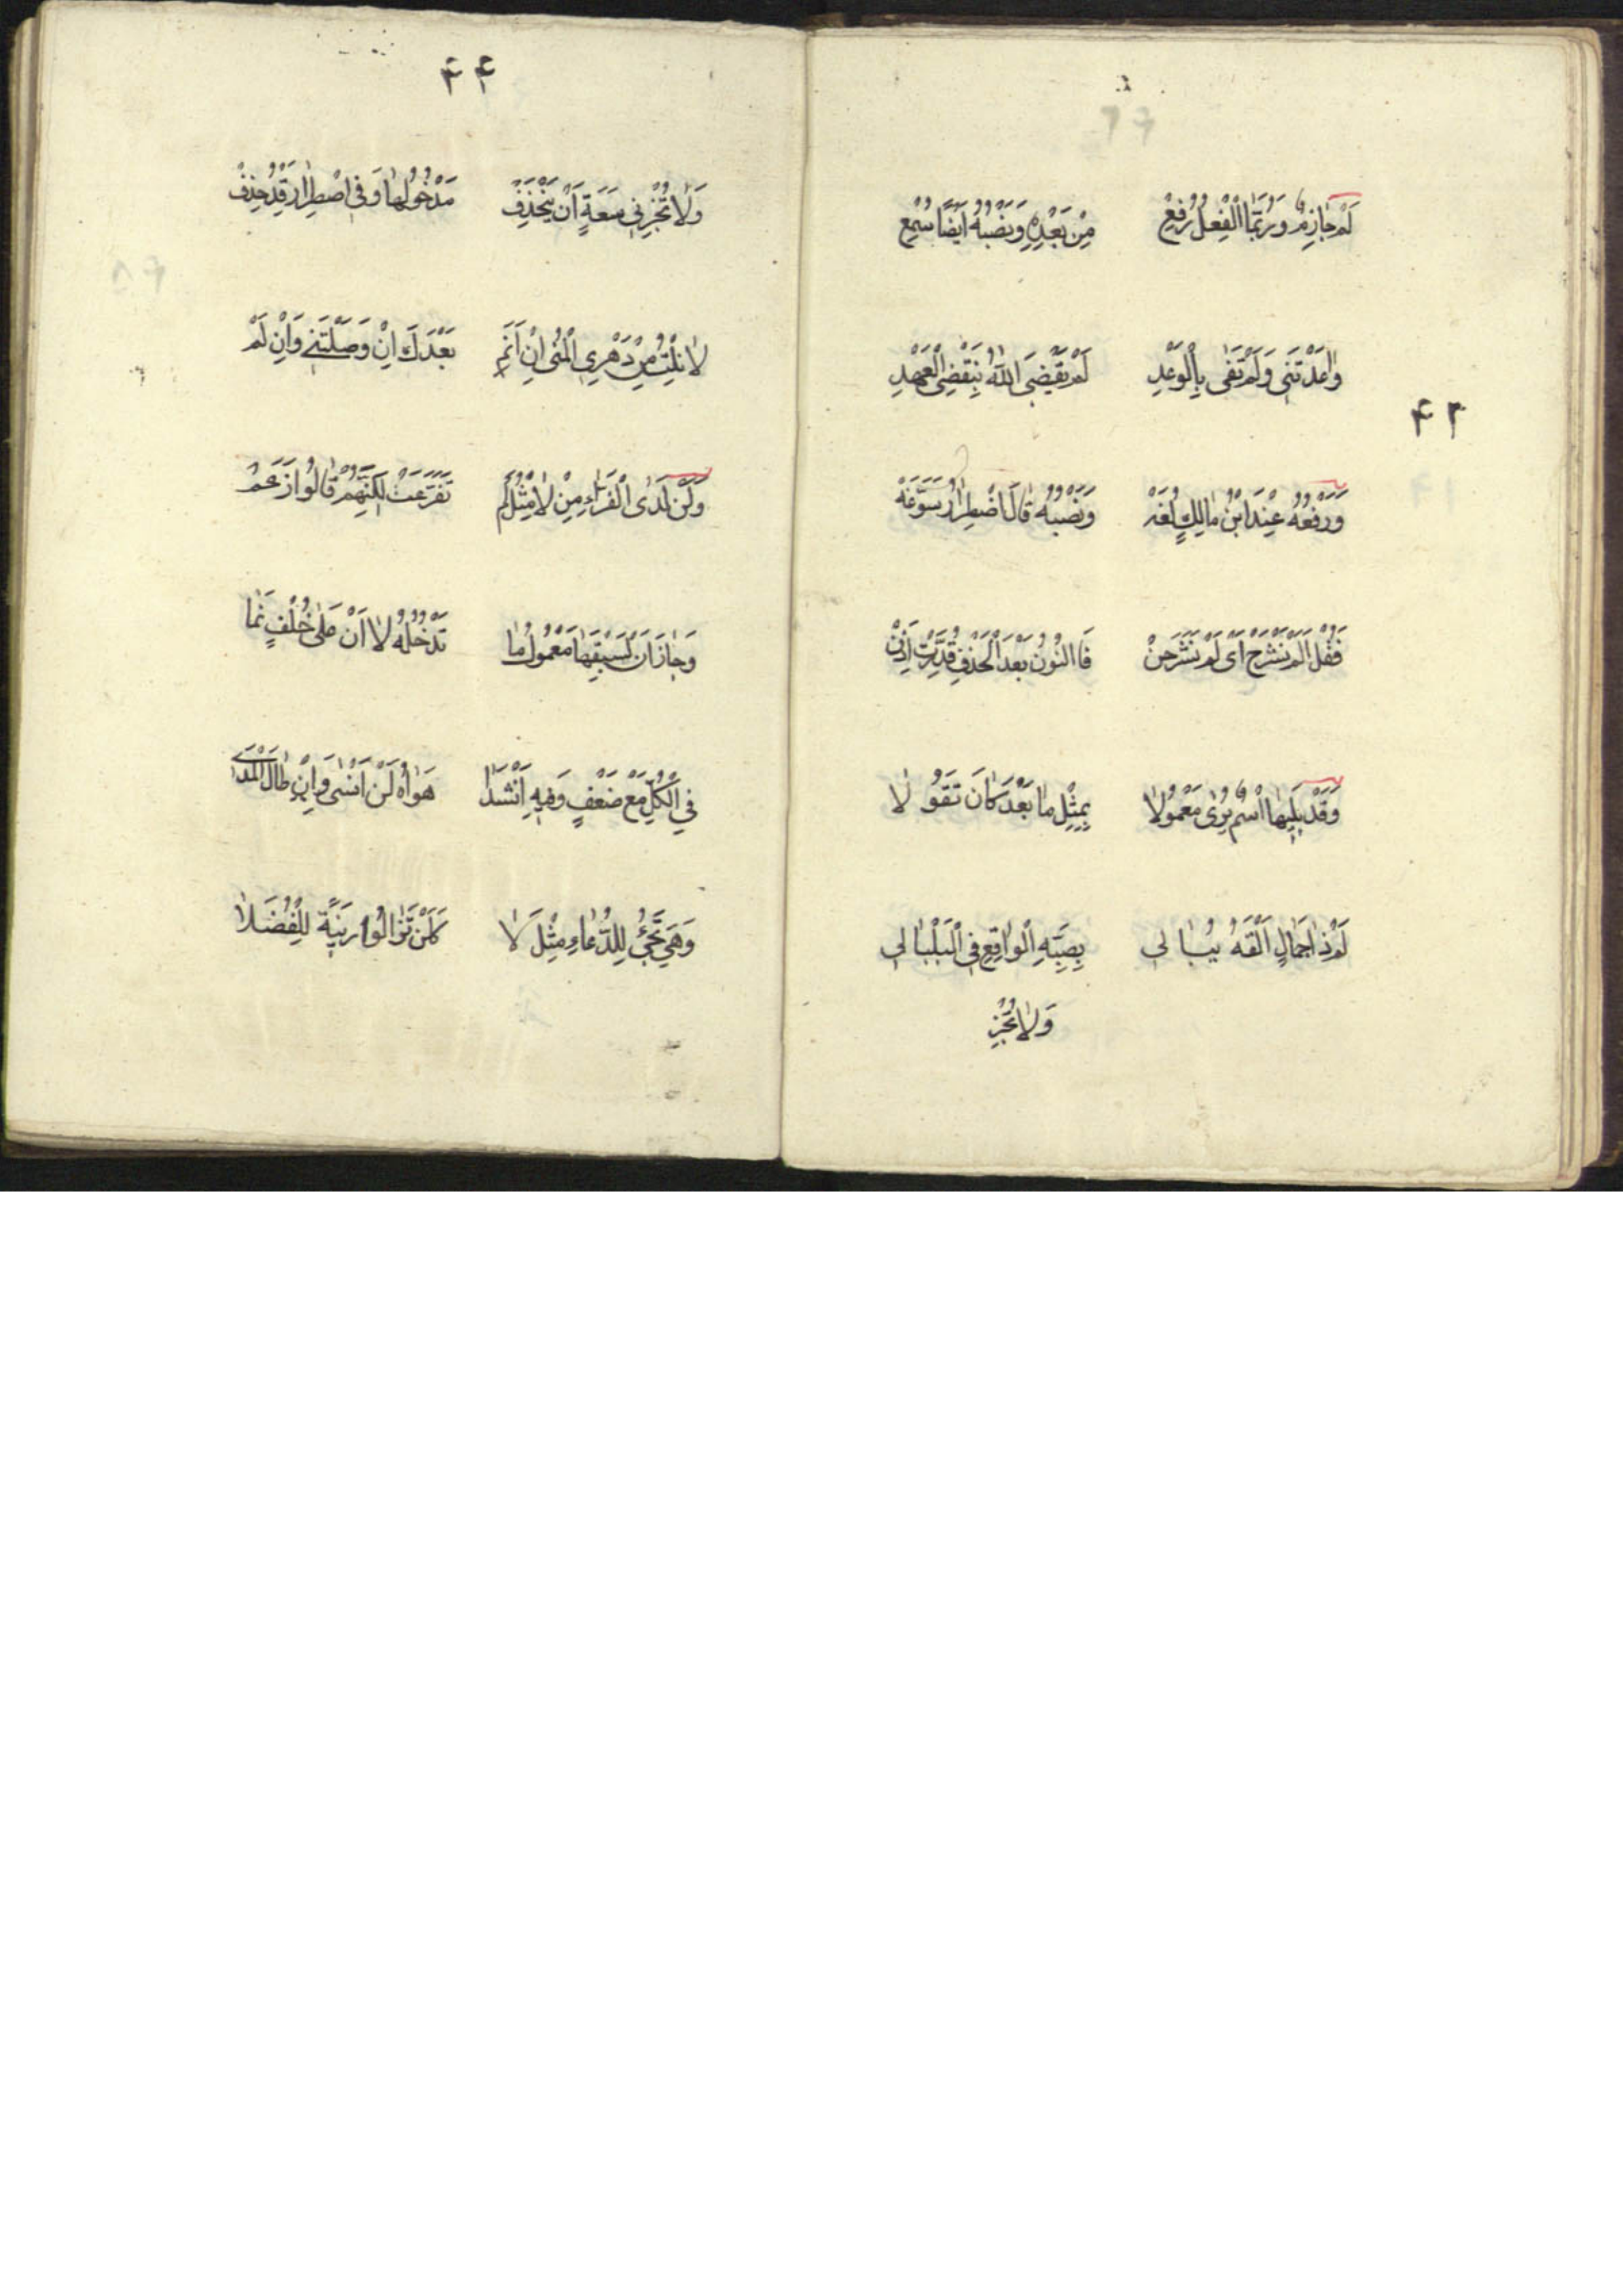 لَمْ جٰازِمٌ وَرُبَّمَا الْفِعْلُ رُفِعْ مِنْ بَعْدِهِ وَنَصْبُهُ اَيْضًا سُمِعْ
وٰاعَدْتَنى وَلَمْ تَفى بِالْوَعْدِ لَمْ يَقْضِىَ اللّٰهُ بِنَقْضِ الْعَهْدِ
وَرَفْعُهُ عِنْدَ ابْنِ مٰالِكٍ لُغَه وَنَصْبُهُ قٰالَ اضْطِرٰارٌ سَوَّغَهْ
فَقُلْ اَلَمْ نَشْرَحَ اَىْ لَمْ نَشْرَحَنْ فَاالنُّونُ بَعْدَ الْحَذْفِ قُدِّرَتْ اِذَنْ
وَقَدْ يَليهٰا اسْمٌ يُرٰى مَعْمُولاٰ بِمِثْلِ مٰا بَعْدَ كٰانَ تَقُولاٰ
لَمْ ذٰا جَمٰالٍ اَلْقَهُ يُبٰالى بِصَبِّهِ الْوٰاقِعِ فِى الْبَلْبٰالى
وَلاٰ تُجِزْ
٤٣
٤٤
وَلاٰ تُجِزْ فى سَعَةٍ اَنْ يَنْحَذِفْ مَدْخُولُهٰا وَفِى اضْطِرٰارٍ قَدْ حُذِفْ
لاٰ نِلْتُ مِنْ دَهْرِى الْمُنٰى اِنْ اَنَمِ بَعْدَكَ اِنْ وَصَلْتَنى وَاِنْ لَمْ
وَلَنْ لَدَى الْفَرّٰاءِ مِنْ لاٰ مِثْلُ لَمْ تَفَرَّعَتْ لٰكِنَّهُمْ قٰالُوا زَعَمْ
وَجٰازَ اَنْ يَسْبِقَهٰا مَعْمُولُ مٰا تَدْخُلُهُ لاٰ اَنْ عَلٰى خُلْفٍ نَمٰا
فِى الْكُلِّ مَعْ ضَعْفٍ وَفيهِ اَنْشَدٰا هَوٰاهُ لَنْ اَنْسٰى وَاِنْ طٰالَ الْمَدٰى
وَهِىَ تَجِئُ لِلدُّعٰاءِ مِثْلَ لاٰ كَلَنْ تَزٰالُوا زينَةً لِلْفُضَلاٰ